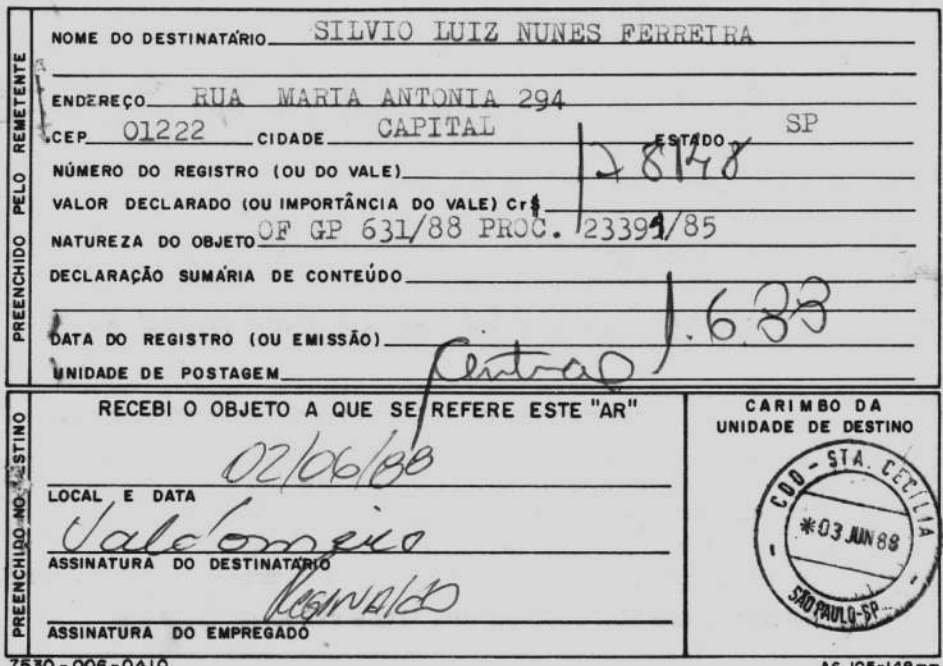 PREENCHIDO PELO REMETENTE
NOME DO DESTINATÁRIO SILVIO LUIZ NUNES FERREIRA
ENDEREÇO RUA MARIA ANTONIA 294
CEP 01222 CIDADE CAPITAL ESTADO SP
NÚMERO DO REGISTRO (OU DO VALE) 178148
VALOR DECLARADO (OU IMPORTÂNCIA DO VALE) Cr$
NATUREZA DO OBJETO OF GP 631/88 PROC. 23391/85
DECLARAÇÃO SUMÁRIA DE CONTEÚDO
DATA DO REGISTRO (OU EMISSÃO) 1.6.88
UNIDADE DE POSTAGEM Central
PREENCHIDO NO DESTINO
RECEBI O OBJETO A QUE SE REFERE ESTE "AR"
02/06/88
LOCAL E DATA
Valdomiro
ASSINATURA DO DESTINATÁRIO
Reginaldo
ASSINATURA DO EMPREGADO
CARIMBO DA
UNIDADE DE DESTINO
CDD - STA. CECÍLIA
*03 JUN 88
SÃO PAULO-SP
7530-006-0410
A6 105x148mm